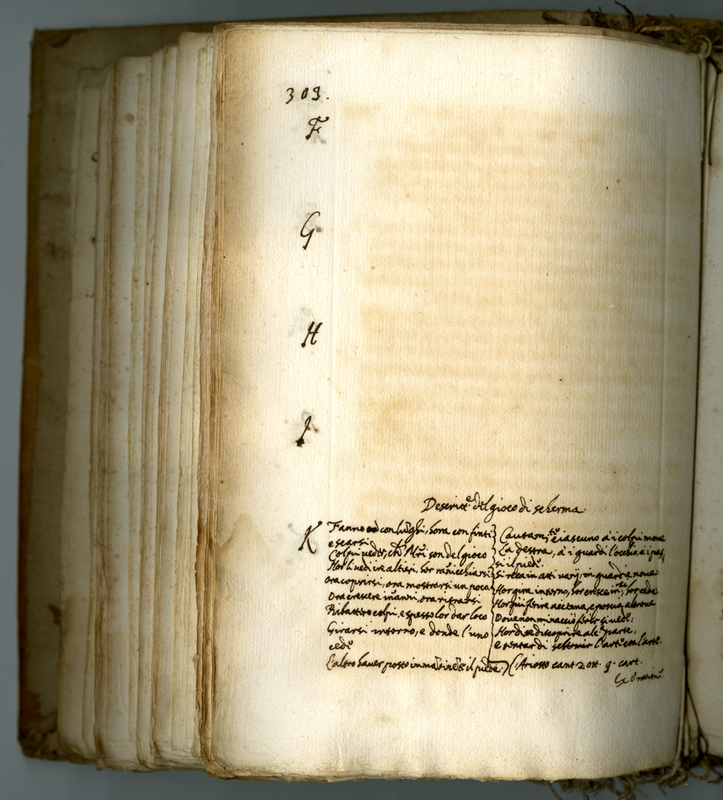 303.
F
G
H
I
Descritt.e del gioco di scherma
K
Fanno hor con lunghi, hora con finti
e scarsi
Colpi veder, che mastri son del gioco
Hor li vedi ire altieri, hor rannicchiarsi
ora coprirsi, ora mostrarsi un poco
Ora crescere innanzi, ora ritrarsi
Ribatter colpi, e spesso lor dar loco
Girarsi intorno, e donde l'uno
cede
L'altro haver posto immantinente il piede
Cautamte ciascuno a i colpi move
La destra, a i guardi l'occhio, a i passi
il piede
Si reca in atti varij, in guardie nove
Hor gira intorno, hor cresce inanzi, hor cede
Hor qui ferire accenna, e poscia altrove
Dove non minacciò ferir si vede
Hor di se discoprire alc. parte,
e tentar di schernir l'arte con l'arte.
(Ariosto cant. 2 ott. 9. cart.